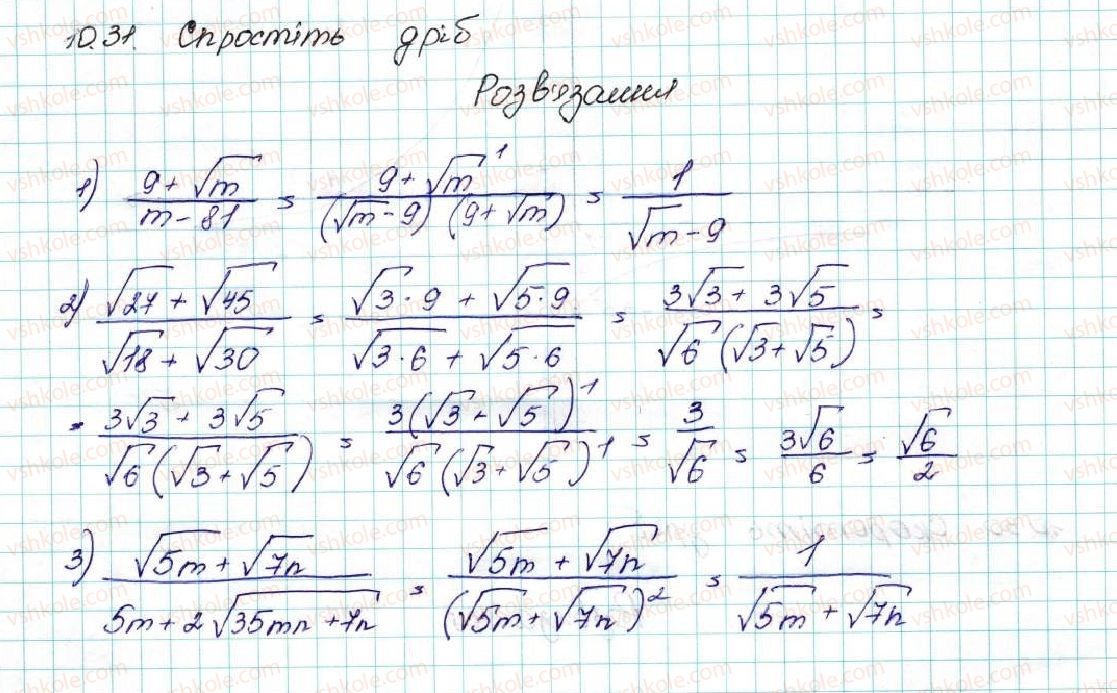 10.31. Спростіть дріб.
Розв'язання
1) \frac{9+\sqrt{m}}{m-81} = \frac{9+\sqrt{m}^1}{(\sqrt{m}-9)(9+\sqrt{m})} = \frac{1}{\sqrt{m}-9}
2) \frac{\sqrt{27}+\sqrt{45}}{\sqrt{18}+\sqrt{30}} = \frac{\sqrt{3}·9+\sqrt{5·9}}{\sqrt{3·6}+\sqrt{5·6}} = \frac{3\sqrt{3}+3\sqrt{5}}{\sqrt{6}(\sqrt{3}+\sqrt{5})} =
= \frac{3\sqrt{3}+3\sqrt{5}}{\sqrt{6}(\sqrt{3}+\sqrt{5})} = \frac{3(\sqrt{3}+\sqrt{5})^1}{\sqrt{6}(\sqrt{3}+\sqrt{5})^1} = \frac{3}{\sqrt{6}} = \frac{3\sqrt{6}}{6} = \frac{\sqrt{6}}{2}
3) \frac{\sqrt{5m}+\sqrt{7n}}{5m+2\sqrt{35mn+7n}} = \frac{\sqrt{5m}+\sqrt{7n}}{(\sqrt{5m}+\sqrt{7n})^2} = \frac{1}{\sqrt{5m}+\sqrt{7n}}